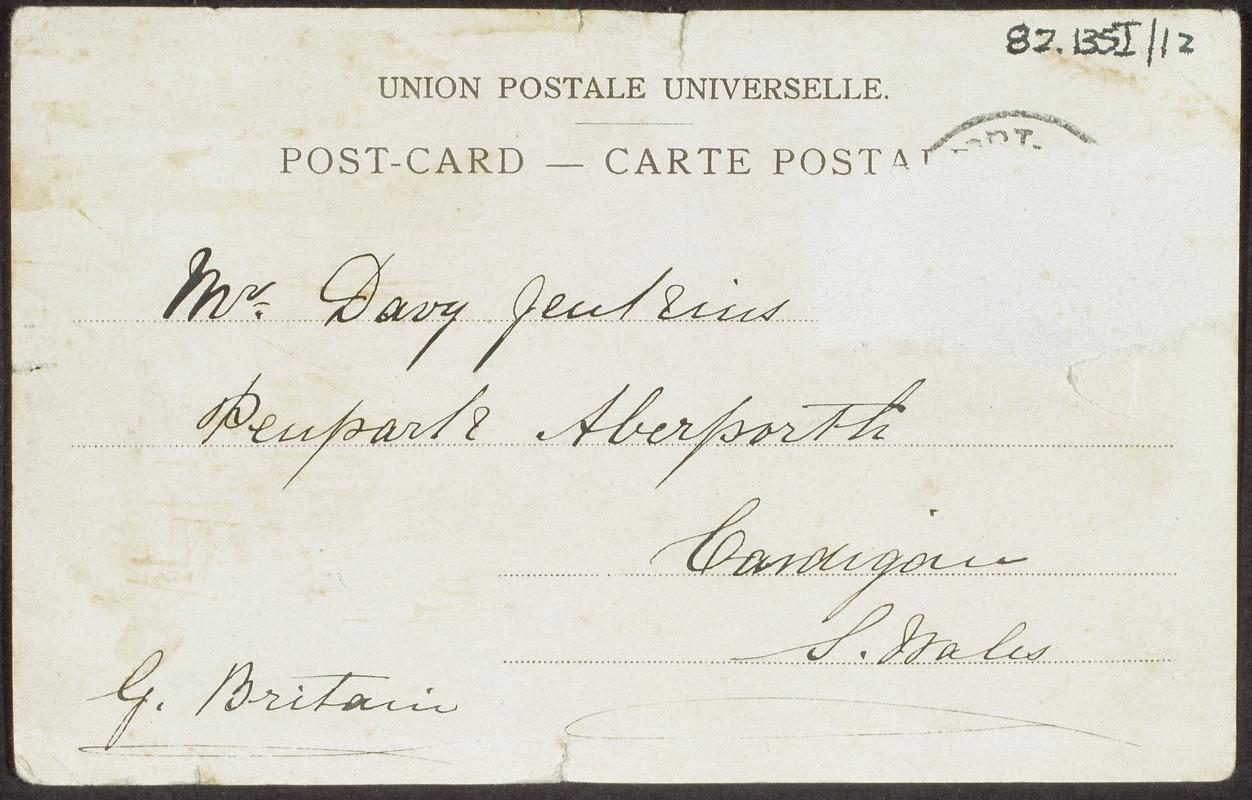 82.135I/12
UNION POSTALE UNIVERSELLE.
POST-CARD — CARTE POSTA
Mr. Davy Jenkins
Penpark Aberporth
Cardigan
S. Wales
G. Britain